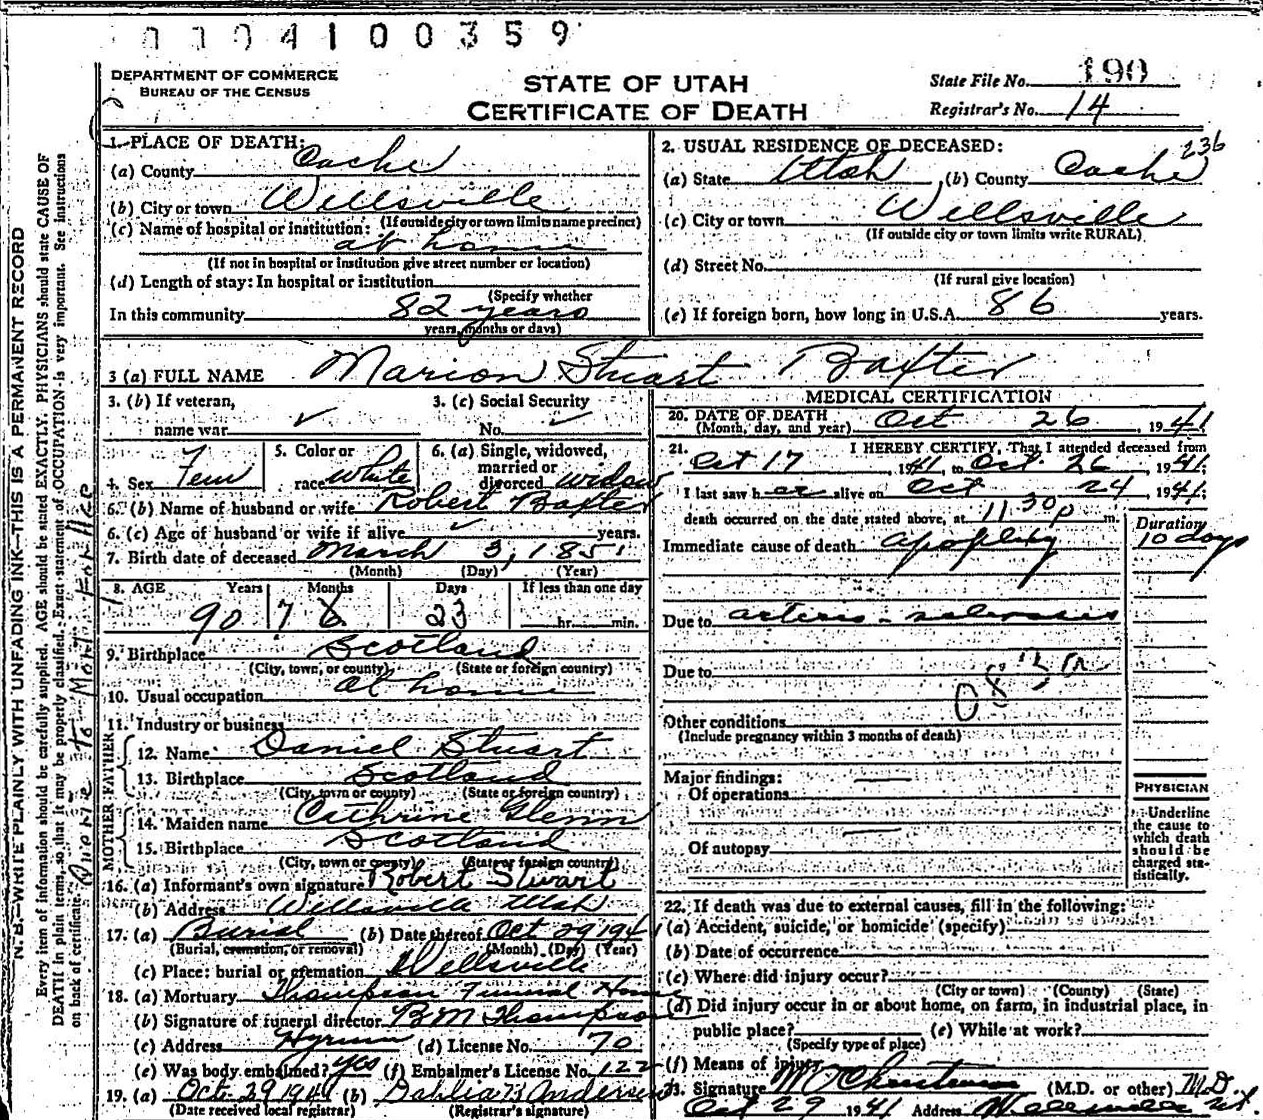 0104100359
DEPARTMENT OF COMMERCE
BUREAU OF THE CENSUS
STATE OF UTAH
CERTIFICATE OF DEATH
State File No. 190
Registrar's No. 14
N. B.—WRITE PLAINLY WITH UNFADING INK—THIS IS A PERMANENT RECORD
Every item of information should be carefully supplied. AGE should be stated EXACTLY. PHYSICIANS should state CAUSE OF
DEATH in plain terms, so that it may be properly classified. Exact statement of OCCUPATION is very important. See instructions
on back of certificate.
1. PLACE OF DEATH:
(a) County Cache
(b) City or town Wellsville
(If outside city or town limits name precinct)
(c) Name of hospital or institution:
at home
(If not in hospital or institution give street number or location)
(d) Length of stay: In hospital or institution
(Specify whether
In this community 82 years
years, months or days)
2. USUAL RESIDENCE OF DECEASED: 236
(a) State Utah (b) County Cache
(c) City or town Wellsville
(If outside city or town limits write RURAL)
(d) Street No.
(If rural give location)
(e) If foreign born, how long in U.S.A. 86 years.
3 (a) FULL NAME Marion Stuart Baxter
3. (b) If veteran, name war ✓
3. (c) Social Security No. ✓
4. Sex Fem
5. Color or race white
6. (a) Single, widowed, married or divorced widow
6. (b) Name of husband or wife Robert Baxter
6. (c) Age of husband or wife if alive ✓ years.
7. Birth date of deceased March 3, 1851
(Month) (Day) (Year)
8. AGE Years Months Days If less than one day
90 7 23 hr. min.
9. Birthplace Scotland
(City, town, or county) (State or foreign country)
10. Usual occupation at home
11. Industry or business
FATHER
12. Name Daniel Stuart
13. Birthplace Scotland
(City, town or county) (State or foreign country)
MOTHER
14. Maiden name Cathrine Glenn
15. Birthplace Scotland
(City, town or county) (State or foreign country)
16. (a) Informant's own signature Robert Stuart
(b) Address Wellsville Utah
17. (a) Burial (b) Date thereof Oct 29 1941
(Burial, cremation, or removal) (Month) (Day) (Year)
(c) Place: burial or cremation Wellsville
18. (a) Mortuary Thompson Funeral Home
(b) Signature of funeral director B M Thompson
(c) Address Hyrum (d) License No. 70
(e) Was body embalmed? yes (f) Embalmer's License No. 122
19. (a) Oct. 29 1941 (b) Dahlia B Andersen
(Date received local registrar) (Registrar's signature)
MEDICAL CERTIFICATION
20. DATE OF DEATH Oct 26, 1941
(Month, day, and year)
21. I HEREBY CERTIFY, That I attended deceased from
Oct 17 1941, to Oct. 26 1941;
I last saw her alive on Oct 24 1941;
death occurred on the date stated above, at 11 30 p m.
Duration
Immediate cause of death apoplexy 10 days
Due to arterio-sclerosis
Due to
083a
Other conditions
(Include pregnancy within 3 months of death)
Major findings:
Of operations
Of autopsy
PHYSICIAN
Underline
the cause to
which death
should be
charged sta-
tistically.
22. If death was due to external causes, fill in the following:
(a) Accident, suicide, or homicide (specify)
(b) Date of occurrence
(c) Where did injury occur?
(City or town) (County) (State)
(d) Did injury occur in or about home, on farm, in industrial place, in
public place? (e) While at work?
(Specify type of place)
(f) Means of injury
23. Signature (M.D. or other) M D
Oct 29 1941 Address Wellsville Ut.